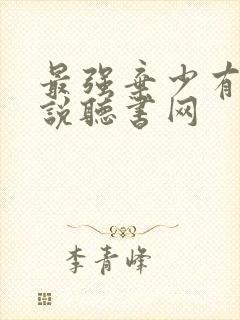 最强弃少有
説聽書网
李青峰